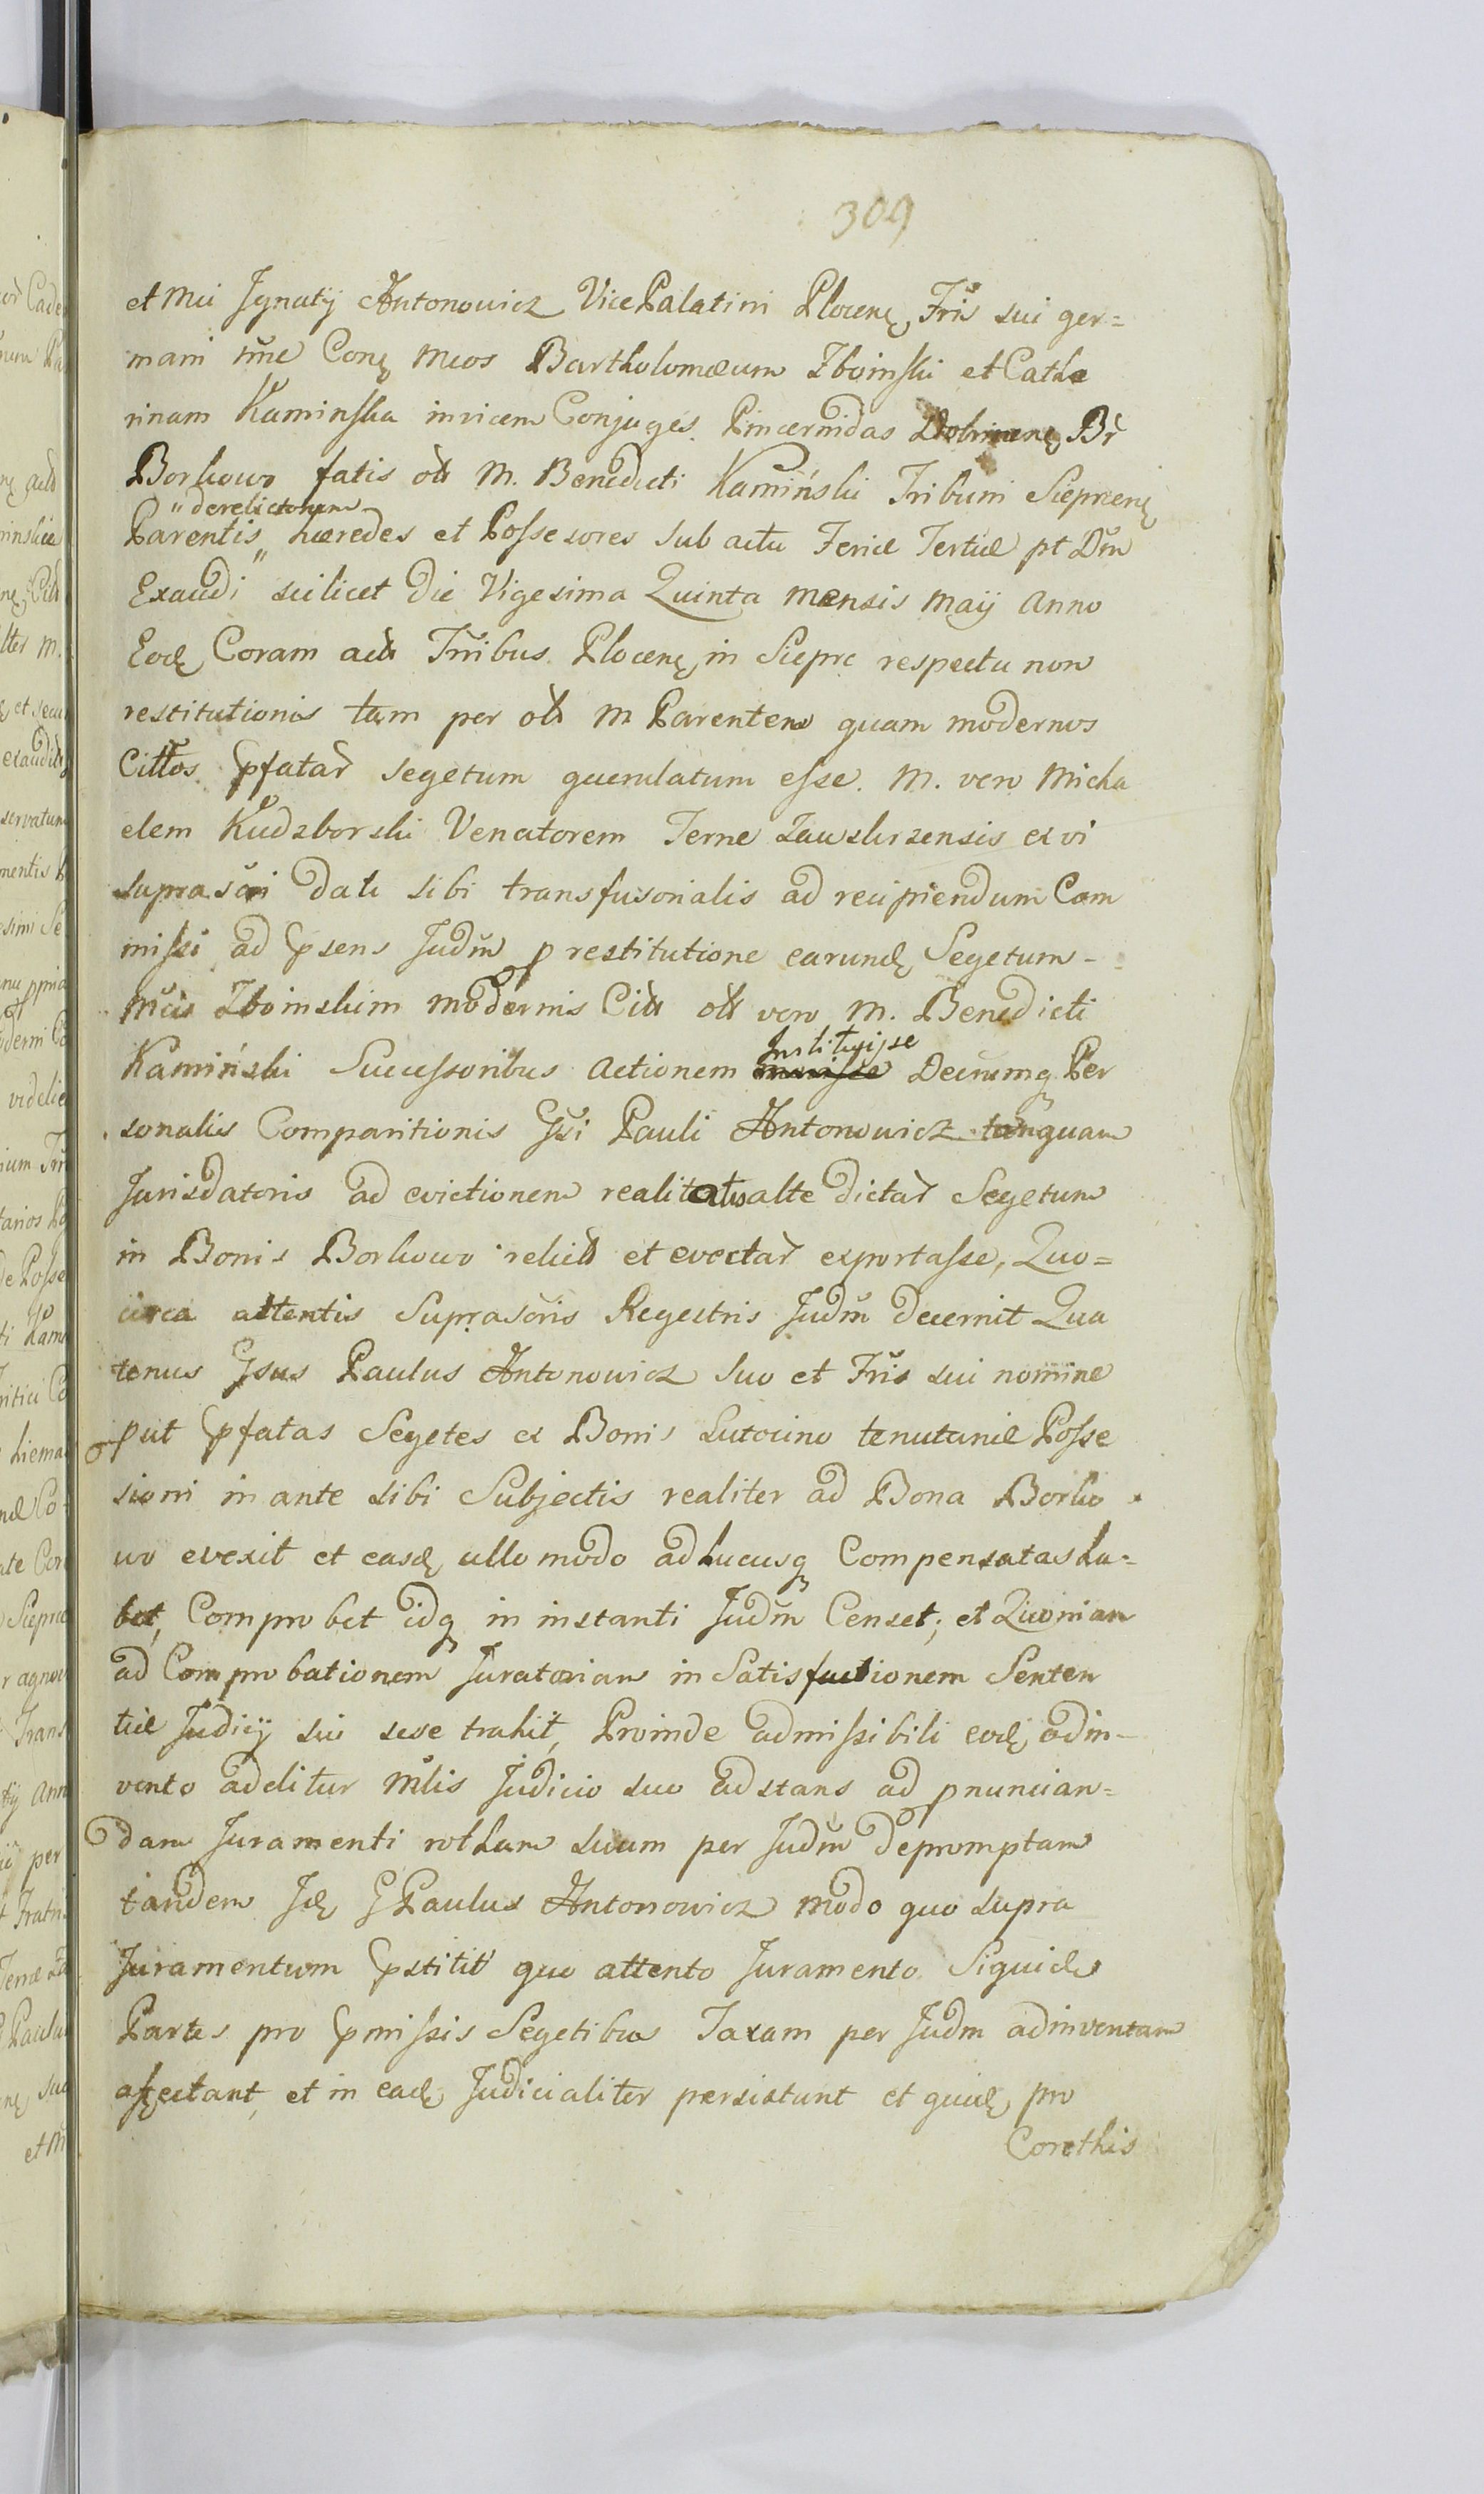 309
et Mci Ignatij Antonowicz VicePalatini Plocenę Fris sui ger=
mani nne Conę Mcos Bartholomæum Zboinski et Catha
rinam Kaminska invicem Conjuges Pincernidas Dobrinenę Br
Borkowo fatis olt M. Benedicti Kamiński Tribuni Sieprcenę
" derelictorum
Parentis " hæredes et Possessores sub actu Feriæ Tertiæ pt Dm
Exaudi scilicet Die Vigesima Quinta Mensis Maij Anno
Eodę Coram actis Trribus Plocenę in Sieprc respectu non
restitutionis tam per olt M Parentem quam modernos
Cittos pfatar segetum querulatum esse. M. vero Micha
elem Rudzborski Venatorem Terræ Zawskrzensis ex vi
suprascri dati sibi transfusorialis ad recipiendum Com
missi ad psens Judm p restitutione earundę Segetum -
Mcis Zboinskim modernis Citt olt vero M. Benedicti
Institujsse
Kamiński Successoribus actionem Decrumq Per
sonalis Comparitionis Gsi Pauli Antonowicz tanquam
Jurisdatoris ad evictionem realitatis alte dictar Segetum
in Bonis Borkowo relict et evectar exportasse, Quo=
circa attentis Suprascris Regestris Judm decernit Qua
tenus Gsus Paulus Antonowicz suo et Fris sui nomine
put pfatas Segetes ex Bonis Lutocino tenutariæ Posse
sioni in ante sibi Subjectis realiter ad Bona Borko
wo evexit et easdę ullo modo adhucusq Compensatas ha=
bet, Comprobet idq in instanti Judm Censet; et Quoniam
ad Comprobationem Juratoriam in Satisfactionem Senten
tiæ Judicij sui sese trahit, Proinde admissibili eodę adin-
vento aditur Mlis Judicio suo adstans ad pnuncian=
dam Juramenti rotham suum per Judm depromptam
tandem Idę G Paulus Antonowicz modo quo supra
Juramentum pstitit quo attento Juramento Siquidę
Partes pro pmissis Segetibus Taxam per Judm adinventam
affectant, et in eadę Judicialiter persistunt et quidę pro
Corethis